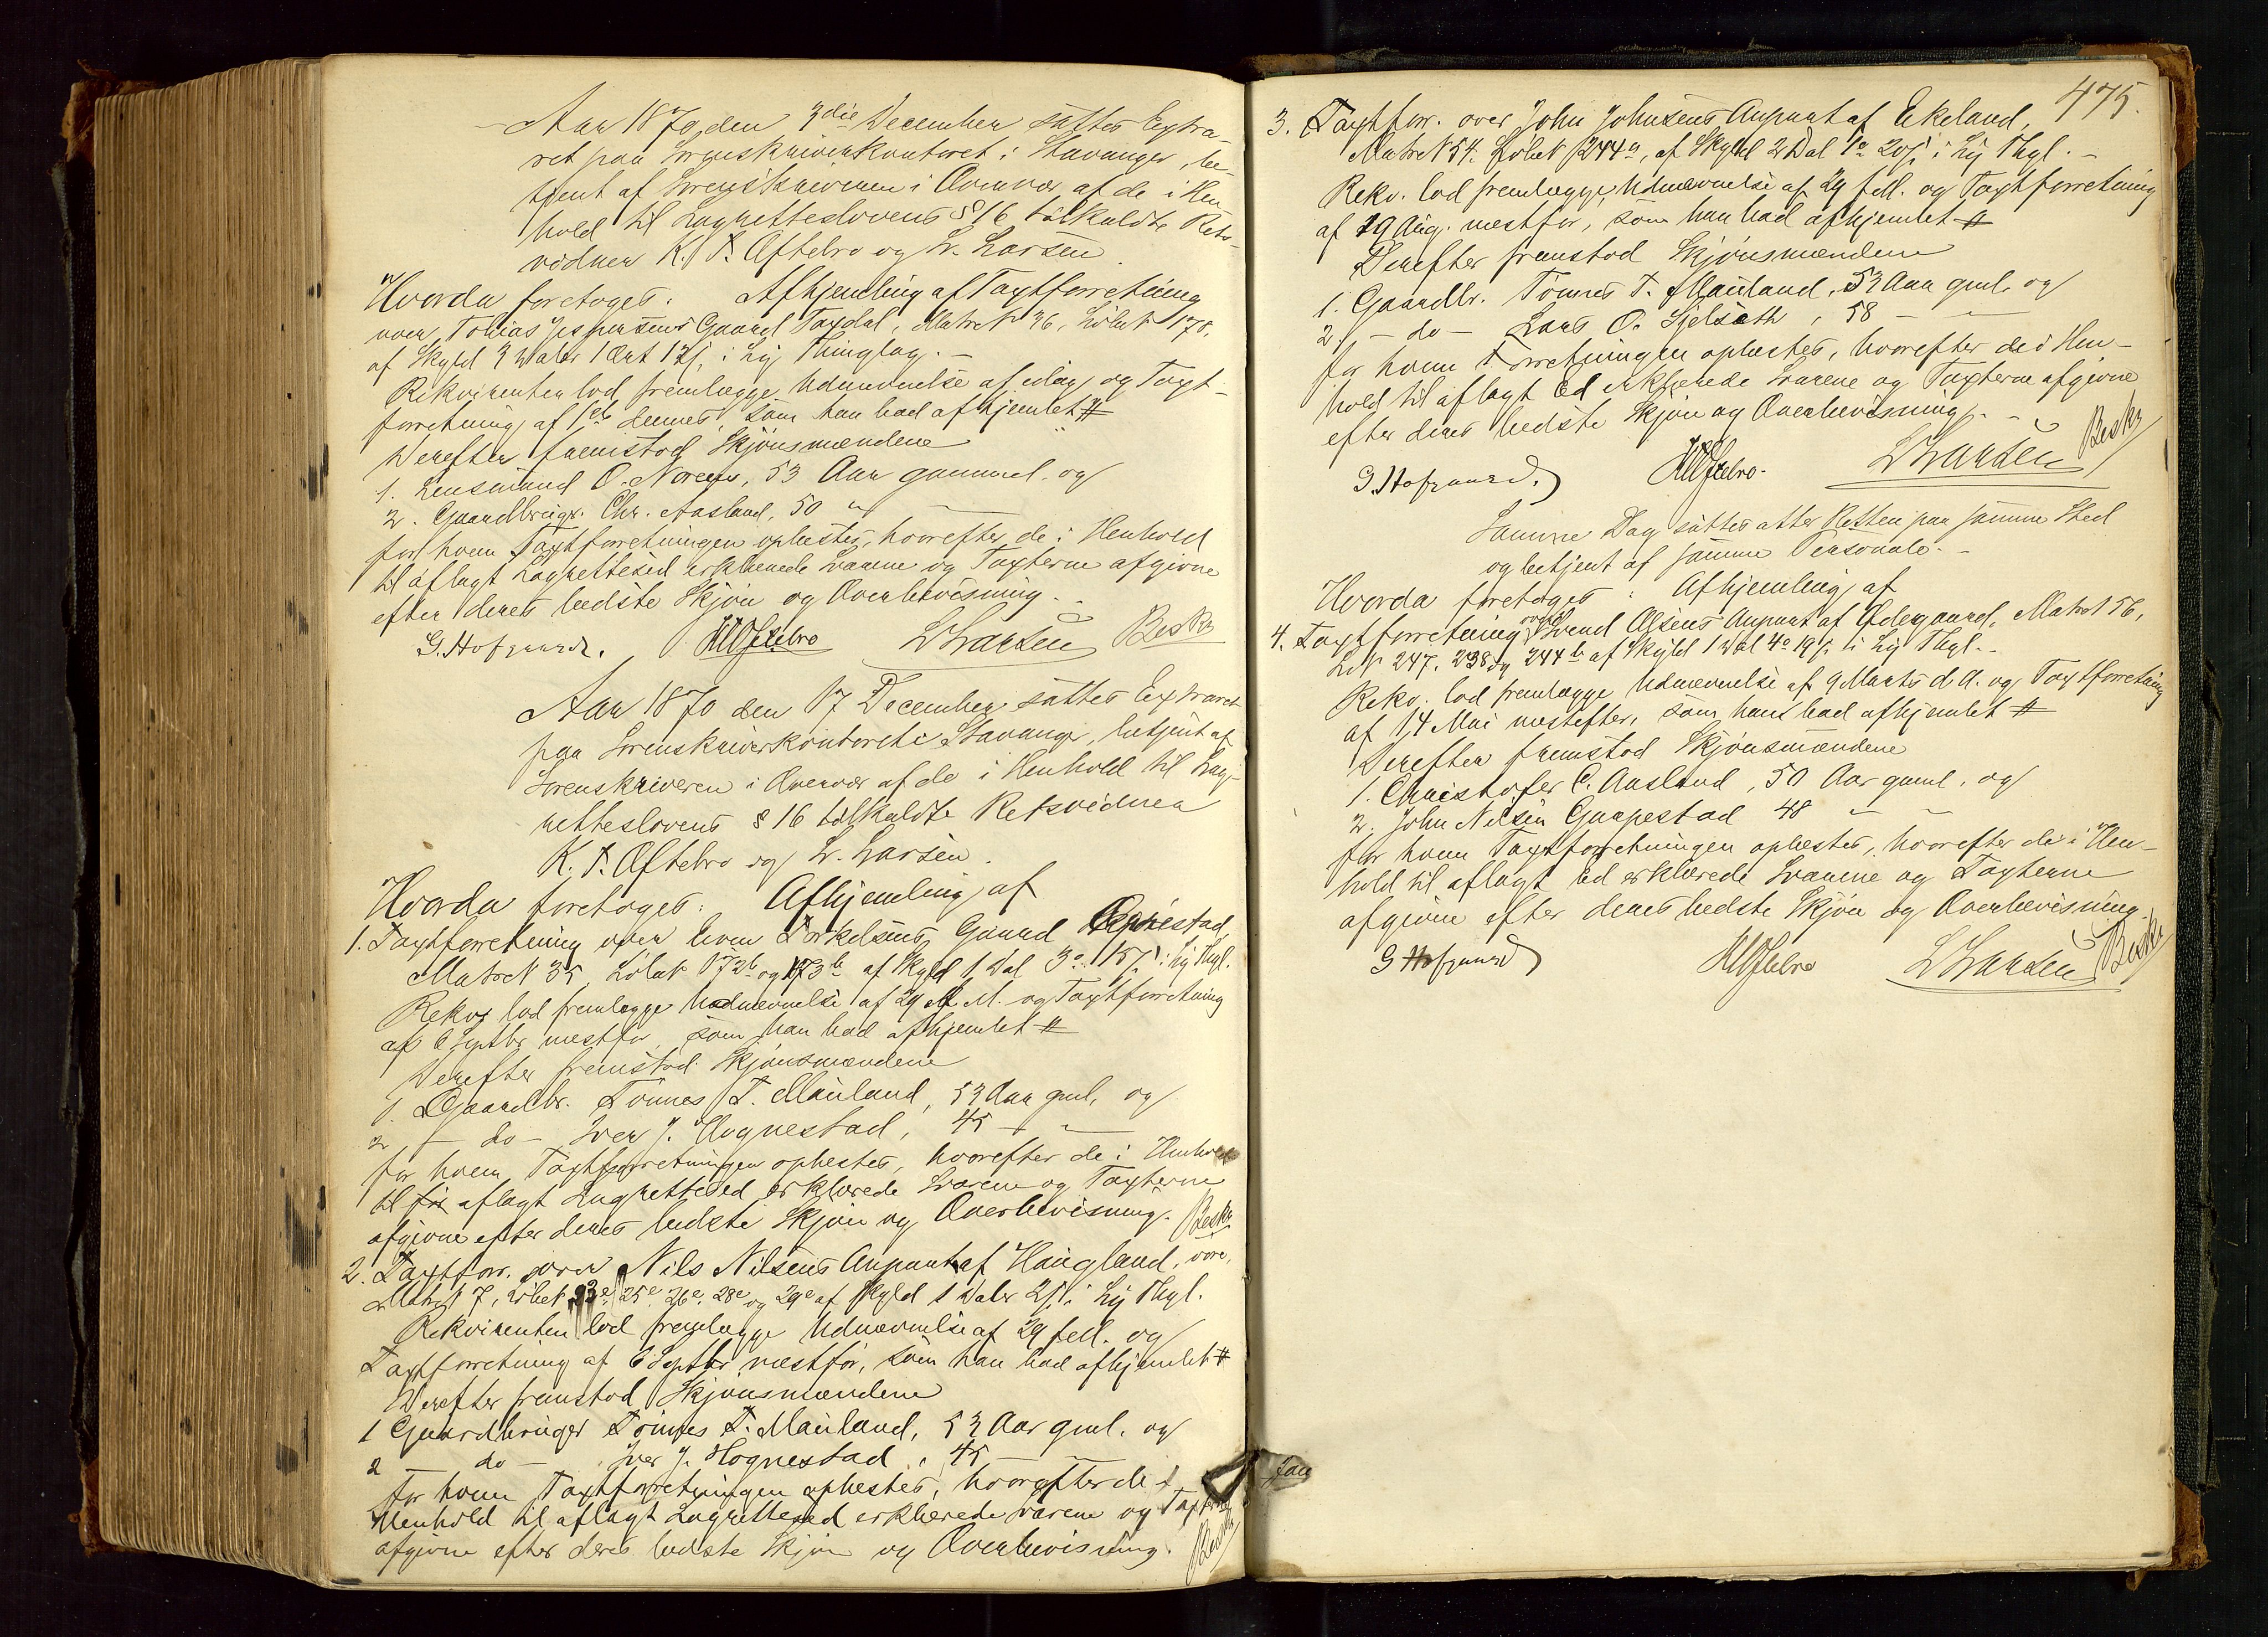 Aar 1870, den 3die December sattes Extra-
ret paa Sorenskriverkontoret i Stavanger, be-
tjent af Sorenskriveren i Overvær af de i Hen-
hold til Lagretteslovens § 16 tilkaldte Rets-
vidner K. T. Oftebro og L. Larsen.
Hvorda foretoges: Afhjemling af Taxtforretning
over Tobias Jespersens Gaard Taxdal, Matr. N 36, Løbe N 178,
af Skyld 3 Daler 1 Ort 12 s, i Lij Thinglag. -
Rekvirenten lod fremlægge Udnævnelse af idag og Taxt-
forretning af 1ste dennes, som han bad afhjemlet #
Derefter fremstod Skjønsmændene
1. Lensmand O. Noreys, 53 Aar gammel, og
2. Gaardbruger Chr. Aasland, 50 "
for hvem Taxtforretningen oplæstes, hvorefter de i Henhold
til aflagt Lagrettesed erklærede Svarene og Taxterne afgivne
efter deres bedste Skjøn og Overbevisning. -
G. Hofgaard. KTOftebro LLarsen Beskr
Aar 1870 den 17 December sattes Extraret
paa Sorenskriverkontoret i Stavanger, betjent af
Sorenskriveren i Overvær af de i Henhold til Lag-
retteslovens § 16 tilkaldte Retsvidner
K. T. Oftebro og L. Larsen.
Hvorda foretoges: Afhjemling af
1. Taxtforretning over Sven Torkelsens Gaard Opstad,
Matr N 35, Løbe N 172b og 173b af Skyld 1 Dal 3o 15 s i Lij Thgl.
Rekv lod fremlægge Udnævnelse af 29 f. M. og Taxtforretning
af 6 Septbr næstfør, som han bad afhjemlet #
Derefter fremstod Skjønsmændene
1. Gaardbr. Tønnes T. Mauland, 53 Aar gml, og
2 - do - Iver J. Hognestad, 45 - "
for hvem Taxtforretningen oplæstes, hvorefter de i Henhold
til aflagt Lagrettesed erklærede Svarene og Taxterne
afgivne efter deres bedste Skjøn og Overbevisning. Beskr
2. Taxtforr. over Nils Nilsens Anpart af Haugland,
Matr N 7, Løbe N 23e, 25e, 26e, 28e og 29e af Skyld 1 Daler 2 s i Lij Thgl.
Rekvirenten lod fremlægge Udnævnelse af 29 f. M. og
Taxtforretning af 6 Septbr næstfør, som han bad afhjemlet #
Derefter fremstod Skjønsmændene
1 Gaardbruger Tønnes T. Mauland, 53 Aar gml. og
2 - do - Iver J. Hognestad, 45 -
for hvem Taxtforretningen oplæstes, hvorefter de i
Henhold til aflagt Lagrettesed erklærede Svarene og Taxterne
afgivne efter deres bedste Skjøn og Overbevisning. Beskr
475.
3. Taxtforr. over John Johnsens Anpart af Ekeland,
Matr N 54. Løbe N 244a, af Skyld 2 Dal 1o 20 s i Lij Thgl. -
Rekv. lod fremlægge Udnævnelse af 29 f. M. og Taxtforretning
af 19 Aug. næstfør, som han bad afhjemlet #
Derefter fremstod Skjønsmændene
1. Gaardbr. Tønnes T. Mauland, 53 Aar gml. og
2. - do - Lars O. Sjelseth, 58 - -
for hvem Forretningen oplæstes, hvorefter de i Hen-
hold til aflagt Ed erklærede Svarene og Taxterne afgivne
efter deres bedste Skjøn og Overbevisning. -
G. Hofgaard. KTOftebro. LLarsen Beskr
Samme Dag sattes atter Retten paa samme Sted
og betjent af samme Personale. -
Hvorda foretoges: Afhjemling af
4. Taxtforretning over Svend Olsens Anpart af Ødegaard, Matr N 56,
L N 247, 238 og 244b af Skyld 1 Dal 4o 19 s i Lij Thgl. -
Rekv. lod fremlægge Udnævnelse af 9 Marts d. A. og Taxtforretning
af 14 Mai næstefter, som han bad afhjemlet #
Derefter fremstod Skjønsmændene
1. Christofer C. Aasland, 50 Aar gaml. og
2. John Nilsen Gaapestad 48 " -
for hvem Taxtforretningen oplæstes, hvorefter de i Hen-
hold til aflagt Ed erklærede Svarene og Taxterne
afgivne efter deres bedste Skjøn og Overbevisning.
G Hofgaard KTOftebro LLarsen Beskr